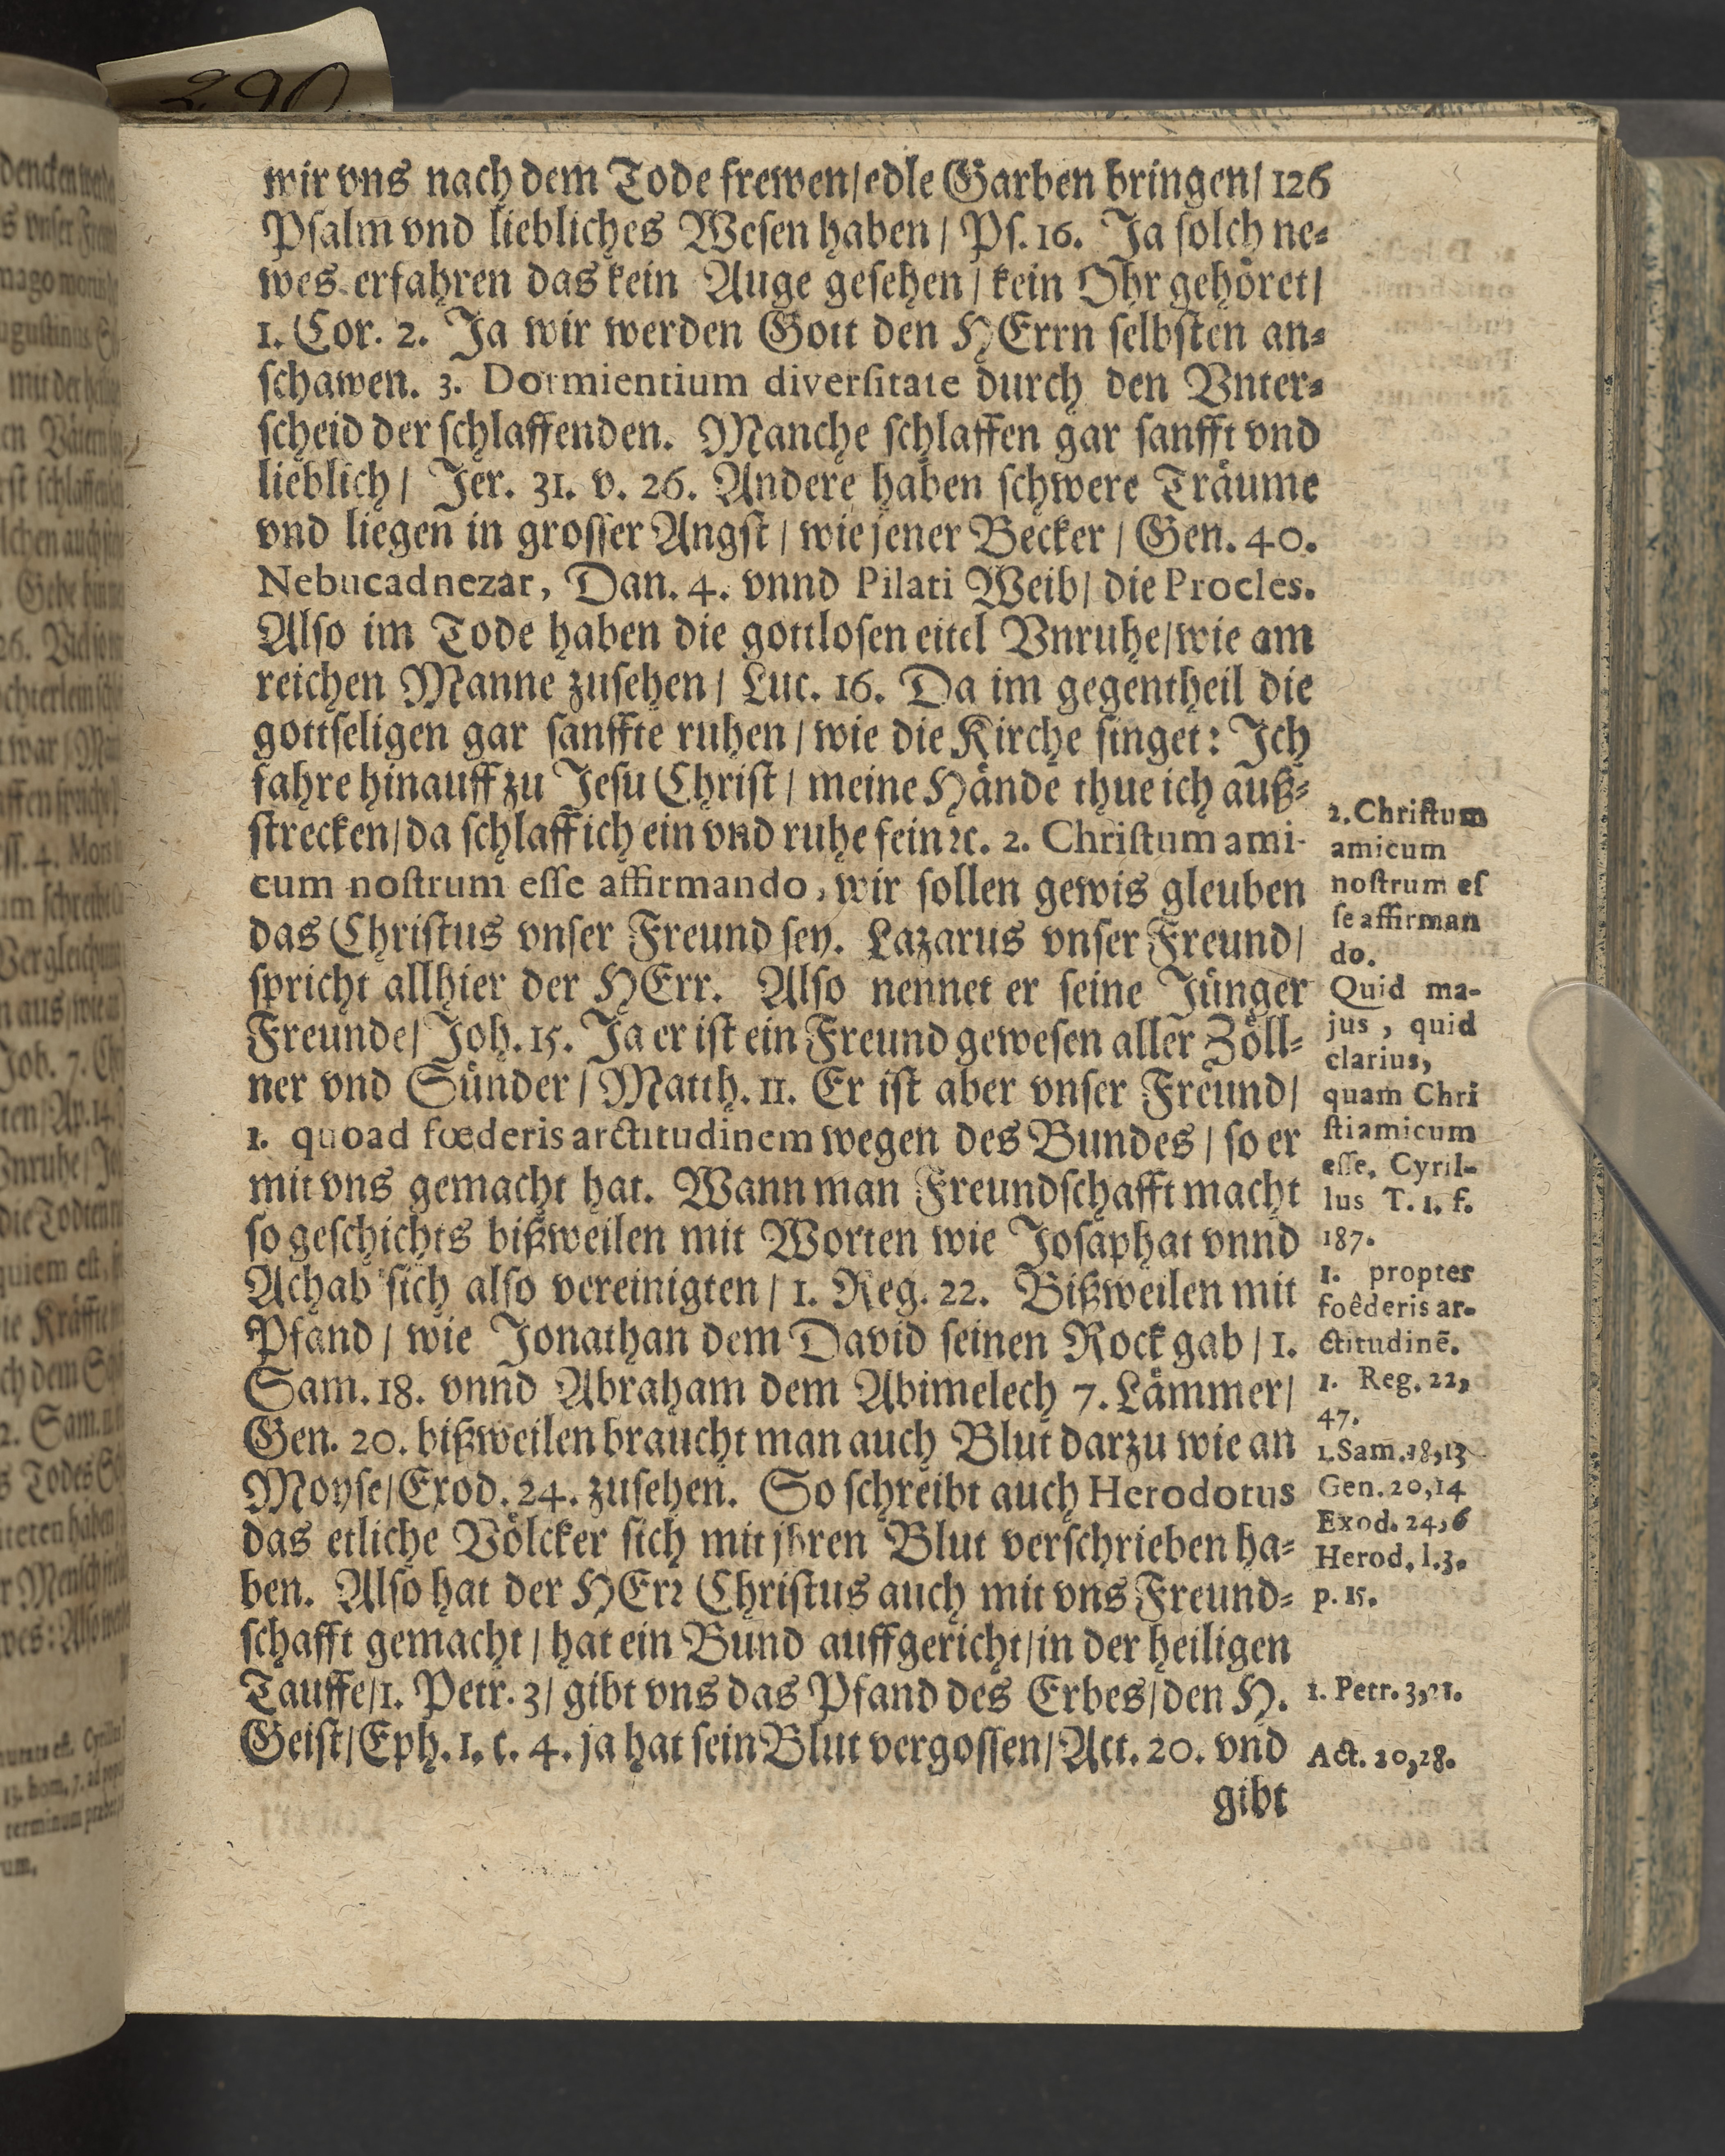 290
wir vns nach dem Tode frewen/ edle Garben bringen/ 126
Psalm vnd liebliches Wesen haben / Ps. 16. Ja solch ne⸗
wes erfahren das kein Auge gesehen / kein Ohr gehöret/
1. Cor. 2. Ja wir werden Gott den HErrn selbsten an⸗
schawen. 3. Dormientium diversitate durch den Vnter⸗
scheid der schlaffenden. Manche schlaffen gar sanfft vnd
lieblich / Jer. 31. v. 26. Andere haben schwere Träume
vnd liegen in grosser Angst / wie jener Becker / Gen. 40.
Nebucadnezar, Dan. 4. vnnd Pilati Weib/ die Procles.
Also im Tode haben die gottlosen eitel Vnruhe/wie am
reichen Manne zusehen / Luc. 16. Da im gegentheil die
gottseligen gar sanffte ruhen / wie die Kirche singet: Ich
fahre hinauff zu Jesu Christ / meine Hände thue ich auß⸗
strecken/ da schlaff ich ein vnd ruhe fein ꝛc. 2. Christum ami-
cum nostrum esse affirmando, wir sollen gewis gleuben
das Christus vnser Freund sey. Lazarus vnser Freund/
spricht allhier der HErr. Also nennet er seine Jünger
Freunde/ Joh. 15. Ja er ist ein Freund gewesen aller Zöll⸗
ner vnd Sünder / Matth. 11. Er ist aber vnser Freund/
1. quoad fœderis arctitudinem wegen des Bundes / so er
mit vns gemacht hat. Wann man Freundschafft macht
so geschichts bißweilen mit Worten wie Josaphat vnnd
Achab sich also vereinigten / 1. Reg. 22. Bißweilen mit
Pfand / wie Jonathan dem David seinen Rock gab / 1.
Sam. 18. vnnd Abraham dem Abimelech 7. Lämmer/
Gen. 20. bißweilen braucht man auch Blut darzu wie an
Moyse/Exod. 24. zusehen. So schreibt auch Herodotus
das etliche Völcker sich mit jhren Blut verschrieben ha⸗
ben. Also hat der HErꝛ Christus auch mit vns Freund⸗
schafft gemacht / hat ein Bund auffgericht/in der heiligen
Tauffe/1. Petr. 3/ gibt vns das Pfand des Erbes/den H.
Geist/Eph. 1. c. 4. ja hat sein Blut vergossen/Act. 20. vnd
gibt
2. Christum
amicum
nostrum es
se affirman
do.
Quid ma-
jus, quid
clarius,
quam Chri
sti amicum
esse. Cyril-
lus T. 1. f.
187.
1. propter
foêderis ar-
ctitudinẽ.
1. Reg. 22,
47.
1. Sam. 18,13
Gen. 20,14
Exod. 24,6
Herod. l.3.
p. 15.
1. Petr. 3,21.
Act. 20,28.